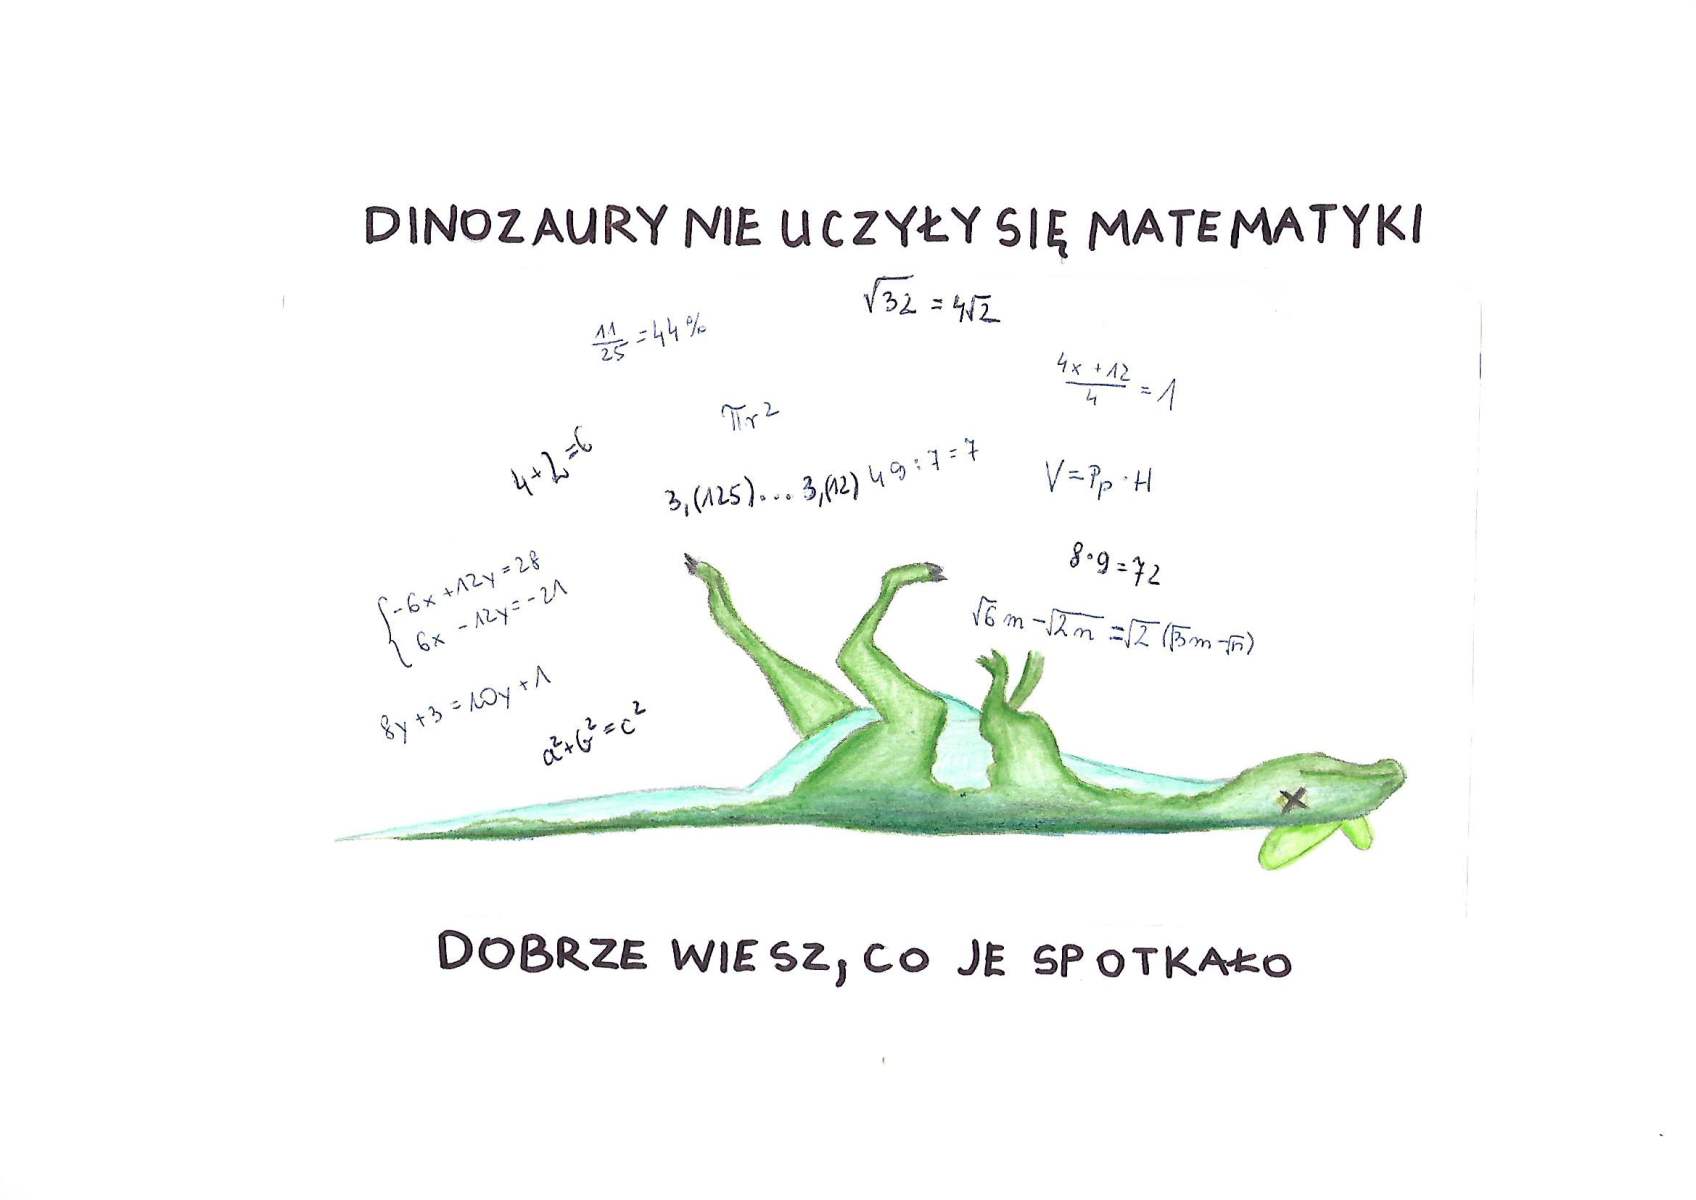 DINOZAURY NIE UCZYŁY SIĘ MATEMATYKI
√32 = 4√2
11/25 = 44%
4x + 12 / 4 = 1
πr²
4+2=6
3,(125)... 3,(12) 49:7=7
V = Pp · H
8·9=72
{-6x+12y=28
6x -12y=-21
√6m - √2n = √2(√3m-√n)
8y+3=10y+1
a²+b²=c²
DOBRZE WIESZ, CO JE SPOTKAŁO